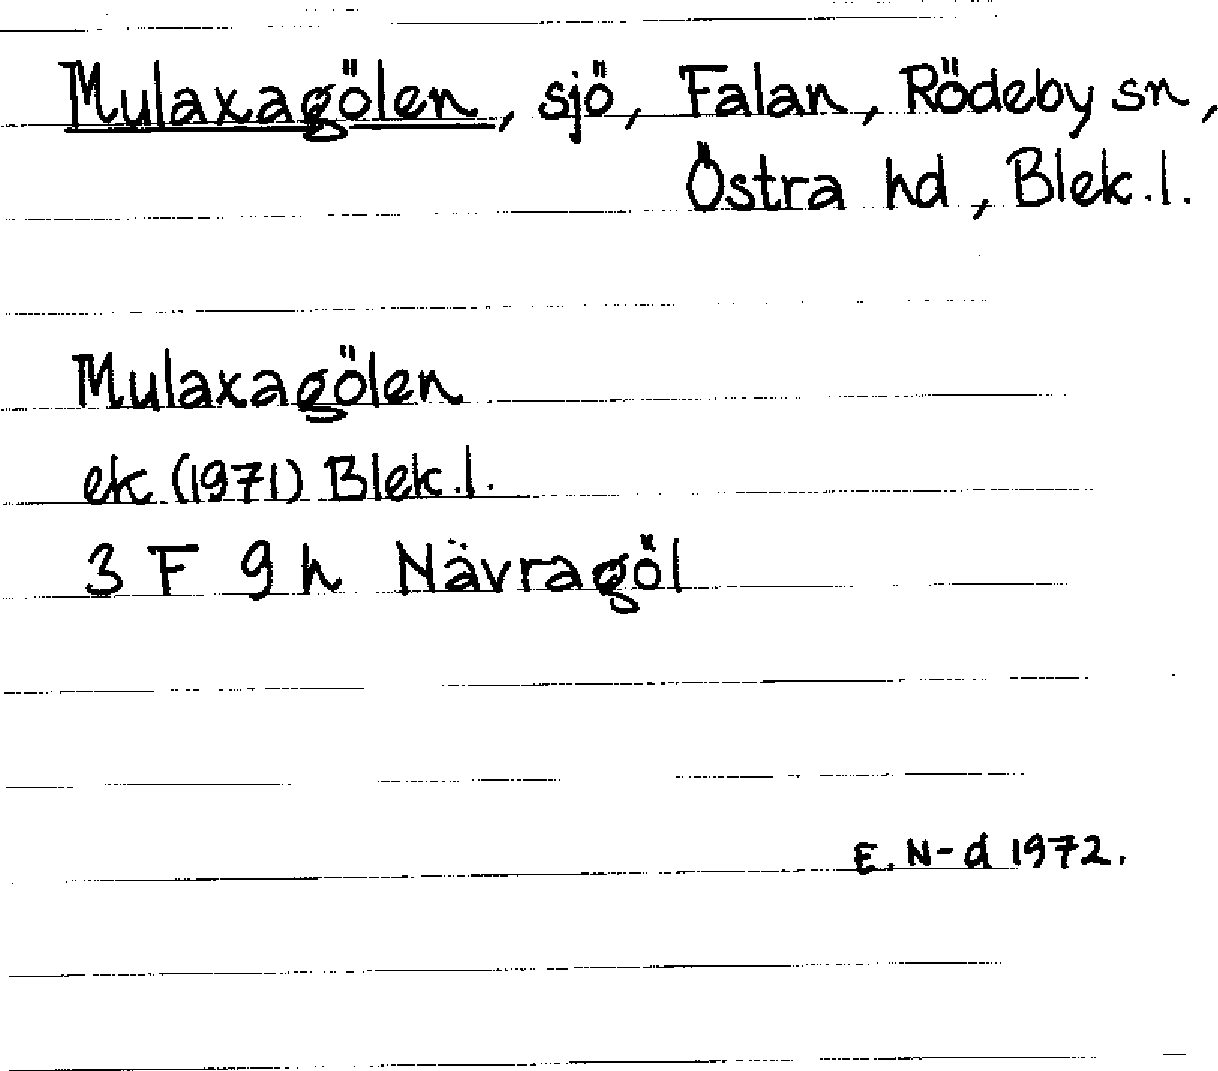 Mulaxagölen, sjö, Falan, Rödeby sn,
Östra hd, Blek.l.
Mulaxagölen
ek (1971) Blek.l.
3 F 9 h Nävragöl
E. N-d 1972.